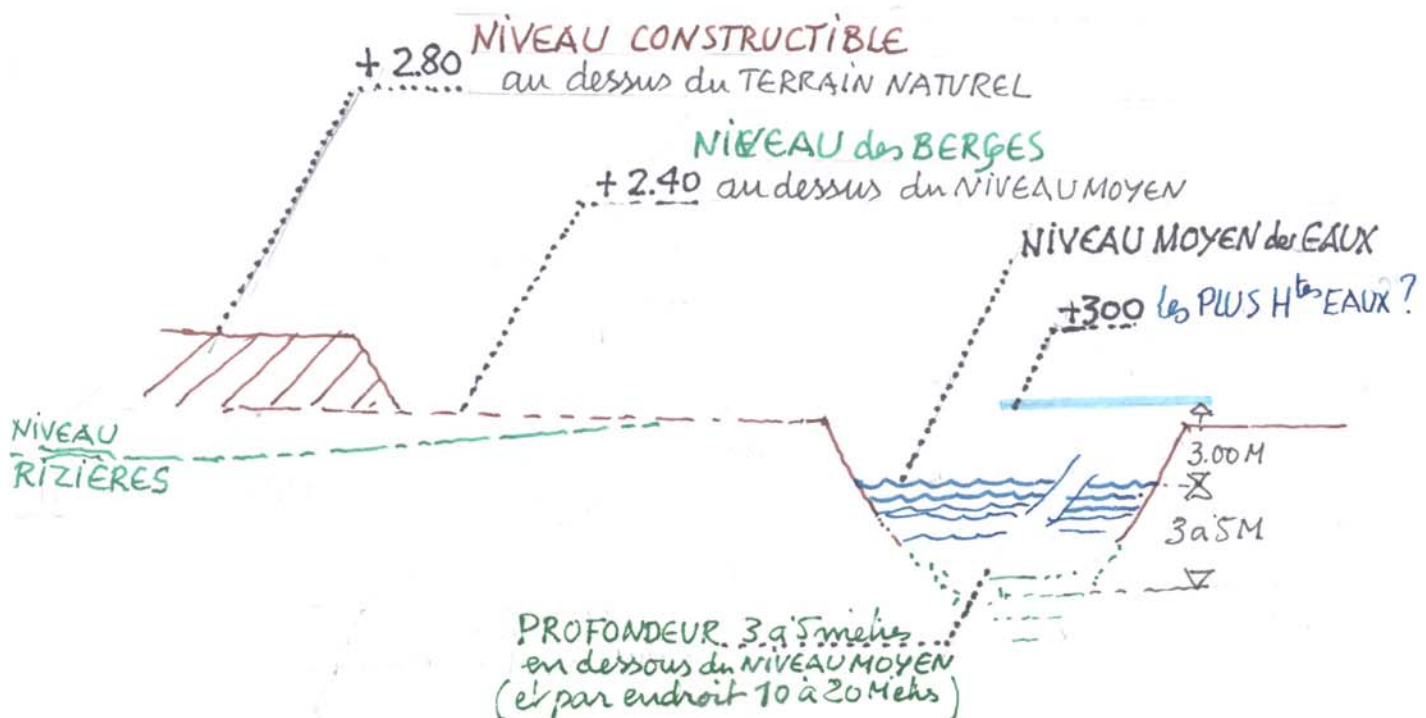 NIVEAU CONSTRUCTIBLE
+ 2.80 au dessus du TERRAIN NATUREL
NIVEAU des BERGES
+ 2.40 au dessus du NIVEAU MOYEN
NIVEAU MOYEN des EAUX
+300 les PLUS Htes EAUX ?
NIVEAU
RIZIÈRES
3.00 M
3 à 5 M
PROFONDEUR 3 à 5 metres
en dessous du NIVEAU MOYEN
(et par endroit 10 à 20 Metres)